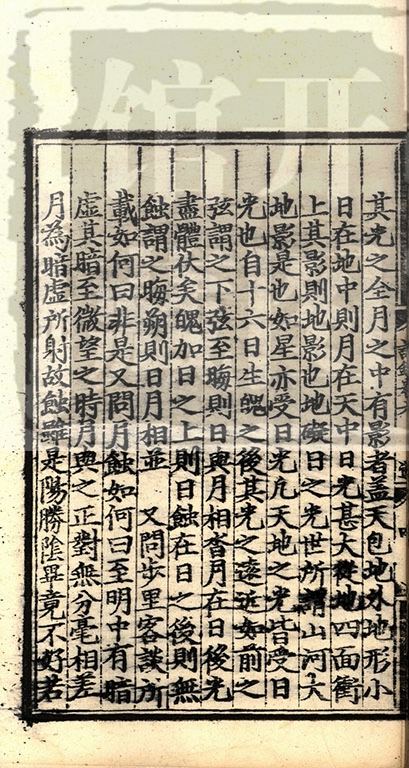 其光之全月之中有影者蓋天包地外地形小
日在地中則月在天中日光甚大從地四面衝
上其影則地影也地礙日之光世所謂山河大
地影是也如星亦受日光凢天地之光皆受日
光也自十六日生魄之後其光之遠近如前之
弦謂之下弦至晦則日與月相沓月在日後光
盡體伏矣魄加日之上則日蝕在日之後則無
蝕謂之晦朔則日月相並 又問步里客談所
載如何曰非是又問月蝕如何曰至明中有暗
虛其暗至微望之時月與之正對無分毫相差
月為暗虛所射故蝕雖是陽勝陰畢竟不好若
開館